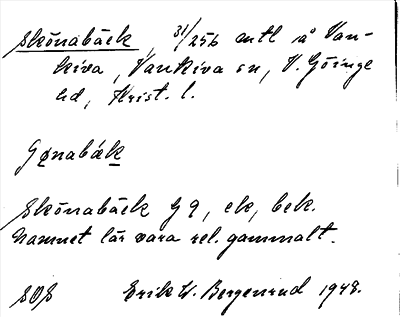 Skönabäck, 31/256 mtl i Van-
kiva, Vankiva sn, V. Göinge
hd, Krist. l.
Gønabäk
Skönabäck G 9, ek, bek.
Namnet lär vara rel. gammalt.
SOS Erik W. Bergenrud 1948.